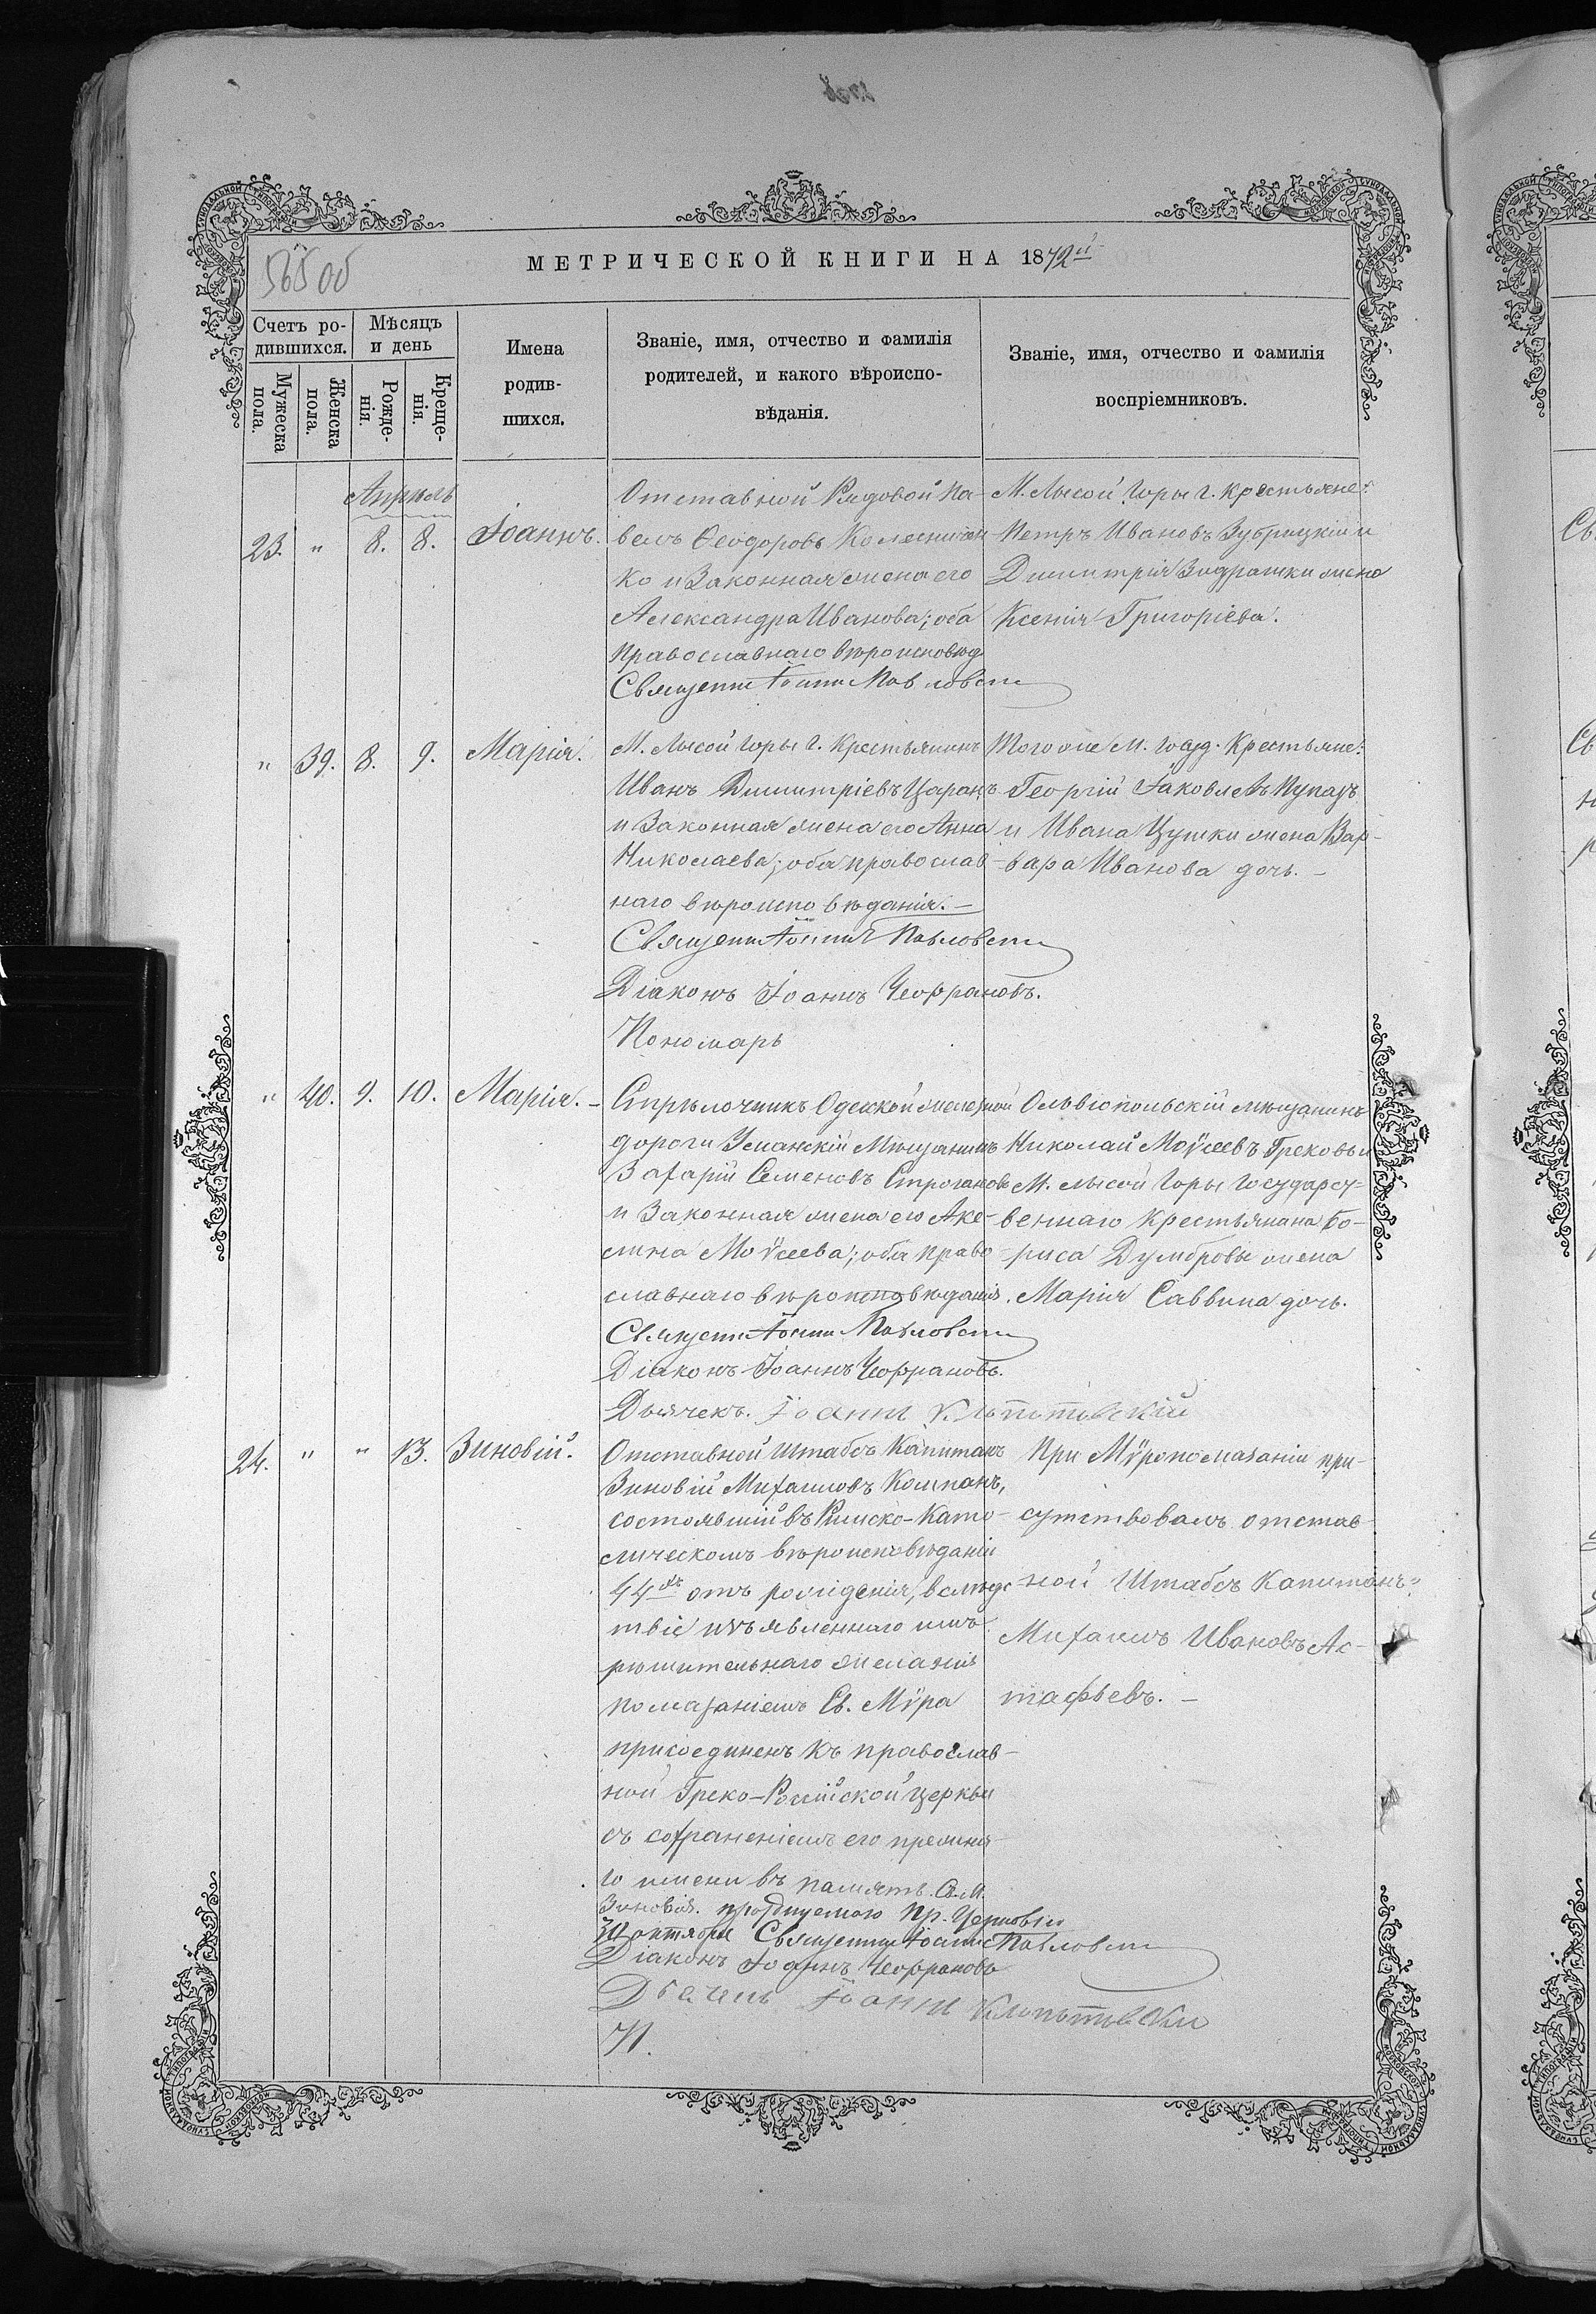 565 об
МЕТРИЧЕСКОЙ КНИГИ НА 1872й
Счетъ ро-
дившихся.
Мѣсяцъ
и день
Мужеска
пола.
Женска
пола.
Рожде-
нія.
Креще-
нія.
Имена
родив-
шихся.
Званіе, имя, отчество и фамилія
родителей, и какого вѣроиспо-
вѣданія.
Званіе, имя, отчество и фамилія
воспріемниковъ.
Апрѣль
23. " 8. 8. Іоаннъ.
Отставной Рядовой Па-
велъ Ѳеодоровъ Колесничен
ко и Законная жена его
Александра Иванова; оба
православнаго вѣроисповѣд
Священни Іоанн Павловски
М. Лысой Горы г. крестьяне:
Петръ Ивановъ Зубрицкій и
Димитрія жена
Ксенія Григоріева.
" 39. 8. 9. Марія.
М. Лысой Горы г. Крестьянинъ
Иванъ Димитріевъ Царанъ
и Законная жена его Анна
Николаева; оба православ-
наго вѣроисповѣданія. –
Священни Іоанн Павловски
Діаконъ Іоаннъ
Пономарь
Того же м. Госуд. Крестьяне:
Георгій Іаковлевъ Пупазъ
и Ивана Цушки жена Вар-
вара Иванова дочь. –
" 40. 9. 10. Марія. –
Стрѣлочникъ Одесской желѣзной
дороги Уманскій Мѣщанинъ
Захарій Семеновъ Строгановъ
и Законная жена его Аке-
лина Моѵсеева; оба право
славнаго вѣроисповѣданія.
Священни Іоанн Павловски
Діаконъ Іоаннъ
Дьячекъ. Іоаннъ
Ольвіопольскій мѣщанинъ
Николай Моѵсеевъ Грековъ и
М. Лысой Горы государст-
веннаго Крестьянина Бо-
риса Думбровы жена
Марія Саввина дочь.
24. " " 13. Зиновій.
Отставной Штабсъ Капитанъ
Зиновій Михаиловъ Компанъ,
состоявшій въ Римско-Като-
лическомъ вѣроисповѣданіи
44хъ отъ рожденія, вслѣдс
твіе изъявленнаго имъ
рѣшительнаго желанія
помазаніемъ Св. Мѵра
присоединенъ къ православ-
ной Греко-Россійской церкви
съ сохраненіемъ его прежня-
го имени въ память Св. М.
Зиновія. празднуемаго Пр. Церковію
30 октября Священни Іоанн Павловски
Діаконъ Іоаннъ
Дьячекъ Іоаннъ
П.
При Мѵропомазаніи при-
сутствовалъ отстав
ной Штабсъ Капитанъ
Михаилъ Ивановъ Ас-
тафьевъ. –